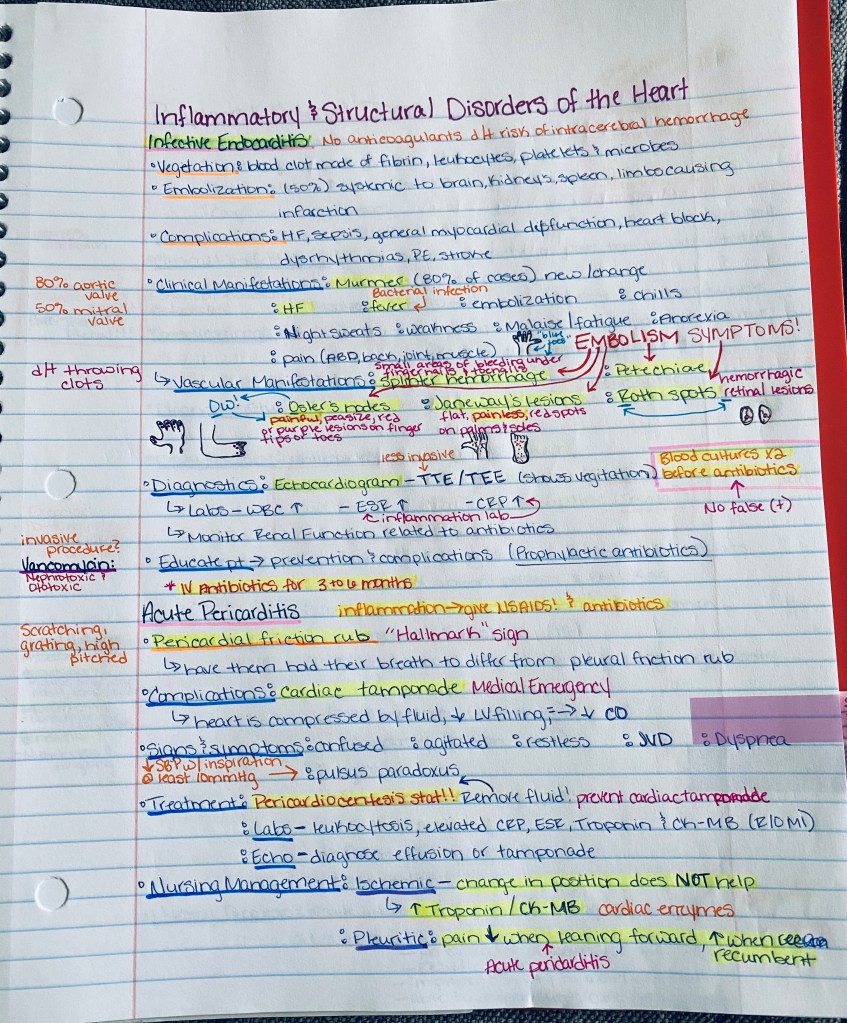 Inflammatory & Structural Disorders of the Heart
Infective Endocarditis No anticoagulants d/t risk of intracerebral hemorrhage
• Vegetation: blood clot made of fibrin, leukocytes, platelets & microbes
• Embolization: (50%) systemic to brain, kidneys, spleen, limbs causing
infarction
• Complications: HF, sepsis, general myocardial dysfunction, heart block,
dysrhythmias, PE, stroke
80% aortic
valve
50% mitral
valve
• Clinical Manifestations: Murmer (80% of cases) new/change
Bacterial infection
: HF : fever : embolization : chills
: Night sweats : weakness : Malaise/fatigue : Anorexia
: pain (ABD, back, joint, muscle) "blue toes" EMBOLISM SYMPTOMS!
d/t throwing
clots
small areas of bleeding under
fingernails & toenails
↳ Vascular Manifestations: splinter hemorrhage : Petechiae
hemorrhagic
retinal lesions
OW! : Osler's nodes : Janeway's lesions : Roth spots
painful, pea size, red
or purple lesions on finger
tips or toes
flat, painless, red spots
on palms & soles
less invasive
• Diagnostics: Echocardiogram - TTE/TEE (shows vegitation)
Blood cultures x2
before antibiotics
No false (+)
↳ Labs - WBC ↑ - ESR ↑ - CRP ↑
inflammation lab
↳ Monitor Renal Function related to antibiotics
invasive
procedure?
• Educate pt → prevention & complications (Prophylactic antibiotics)
Vancomycin:
Nephrotoxic &
Ototoxic
* IV Antibiotics for 3 to 6 months
Acute Pericarditis inflammation → give NSAIDS! & antibiotics
Scratching,
grating, high
pitched
• Pericardial friction rub "Hallmark" sign
↳ have them hold their breath to differ from pleural friction rub
• Complications: cardiac tamponade Medical Emergency
↳ heart is compressed by fluid, ↓ LV filling, → ↓ CO
• Signs & symptoms: confused : agitated : restless : JVD : Dyspnea
↓ SBP w/ inspiration
@ least 10mmHg → : pulsus paradoxus
• Treatment: Pericardiocentesis stat!! Remove fluid! prevent cardiac tamponade
: Labs - leukocytosis, elevated CRP, ESR, Troponin & CK-MB (R/O MI)
: Echo - diagnose effusion or tamponade
• Nursing Management: Ischemic - change in position does NOT help
↳ ↑ Troponin/CK-MB cardiac enzymes
: Pleuritic: pain ↓ when leaning forward, ↑ when
recumbent
Acute peridarditis